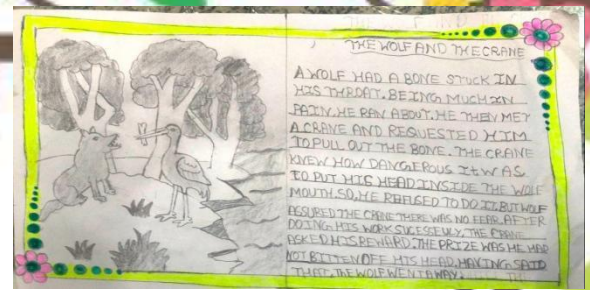 THE WOLF AND THE CRANE
A WOLF HAD A BONE STUCK IN
HIS THROAT. BEING MUCH IN
PAIN. HE RAN ABOUT. HE THEN MET
A CRANE AND REQUESTED HIM
TO PULL OUT THE BONE. THE CRANE
KNEW HOW DANGEROUS IT WAS
TO PUT HIS HEAD INSIDE THE WOLF
MOUTH. SO, HE REFUSED TO DO IT. BUT WOLF
ASSURED THE CRANE THERE WAS NO FEAR. AFTER
DOING HIS WORK SUCESSFULY, THE CRANE
ASKED HIS REWARD. THE PRIZE WAS HE HAD
NOT BITTEN OFF HIS HEAD. HAVING SAID
THAT, THE WOLF WENT AWAY.